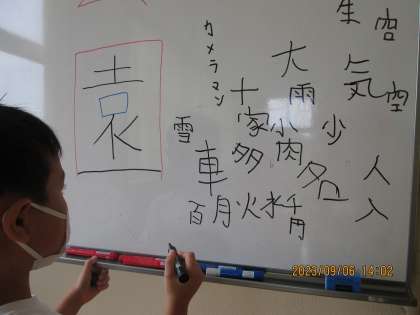 園
カメラマン
雪
大
雨
十
家
小
肉
多
車
名
少
気
生
空
人
入
百
月
火
水
千
円
2023/09/06 14:02